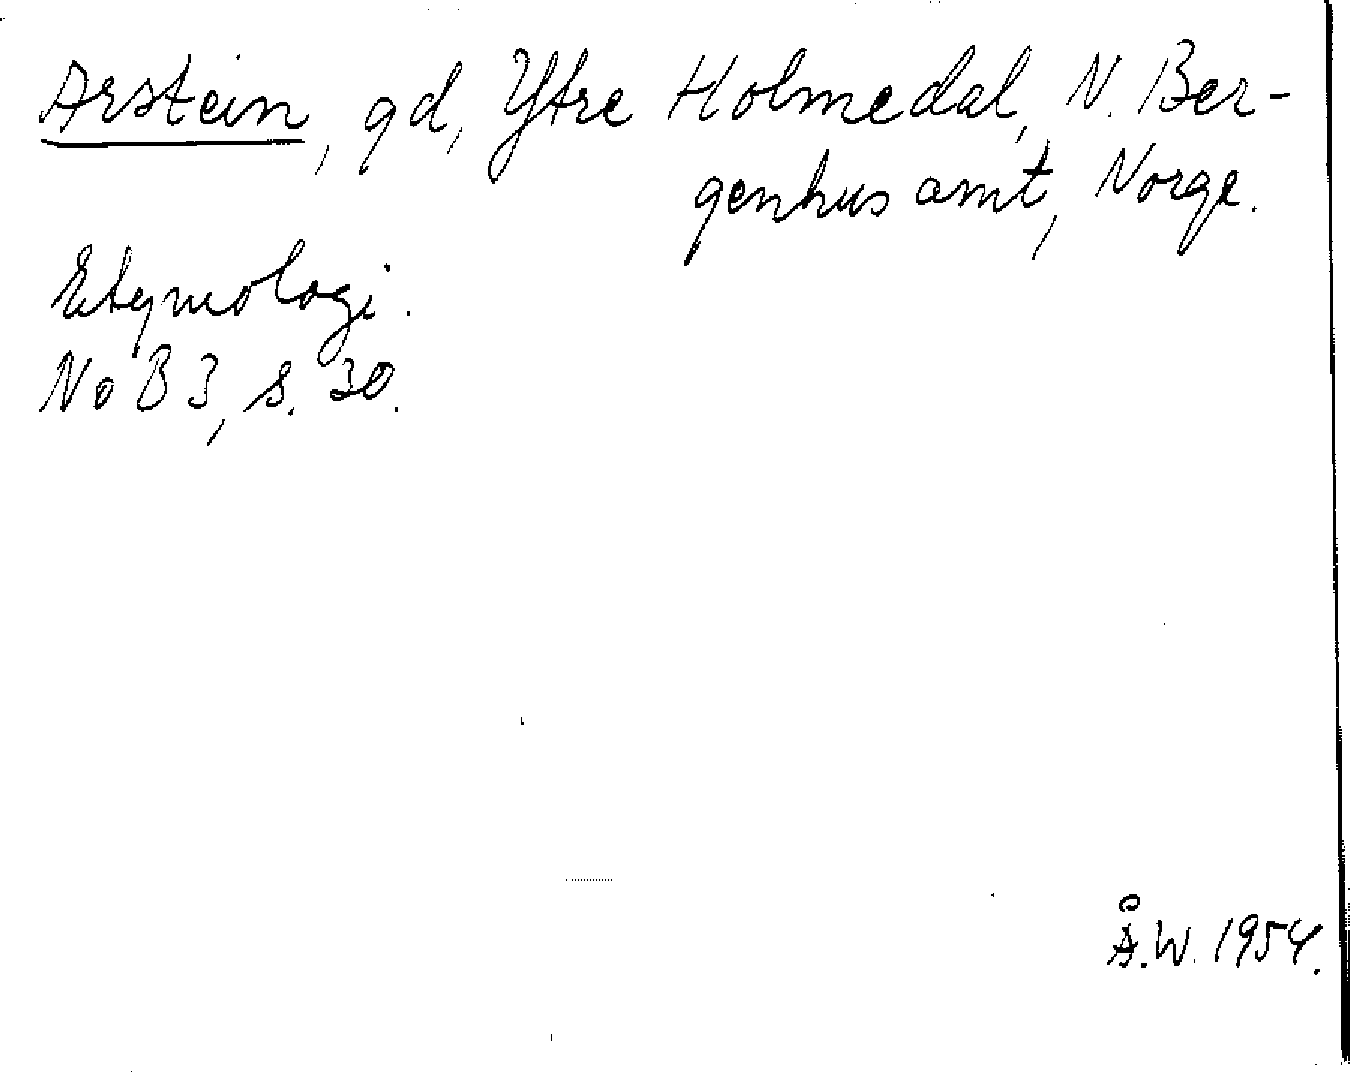 Arstein, gd, Yttre Holmedal, N. Ber-
genhus amt, Norge.
Etymologi.
NoB 3, s. 30.
Å.W. 1954.